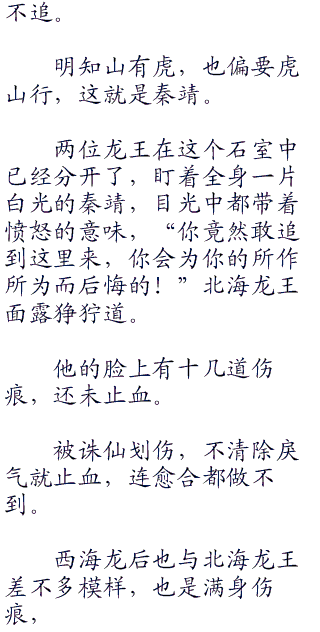 不追。
明知山有虎，也偏要虎
山行，这就是秦靖。
两位龙王在这个石室中
已经分开了，盯着全身一片
白光的秦靖，目光中都带着
愤怒的意味，“你竟然敢追
到这里来，你会为你的所作
所为而后悔的！”北海龙王
面露狰狞道。
他的脸上有十几道伤
痕，还未止血。
被诛仙划伤，不清除戾
气就止血，连愈合都做不
到。
西海龙后也与北海龙王
差不多模样，也是满身伤
痕，